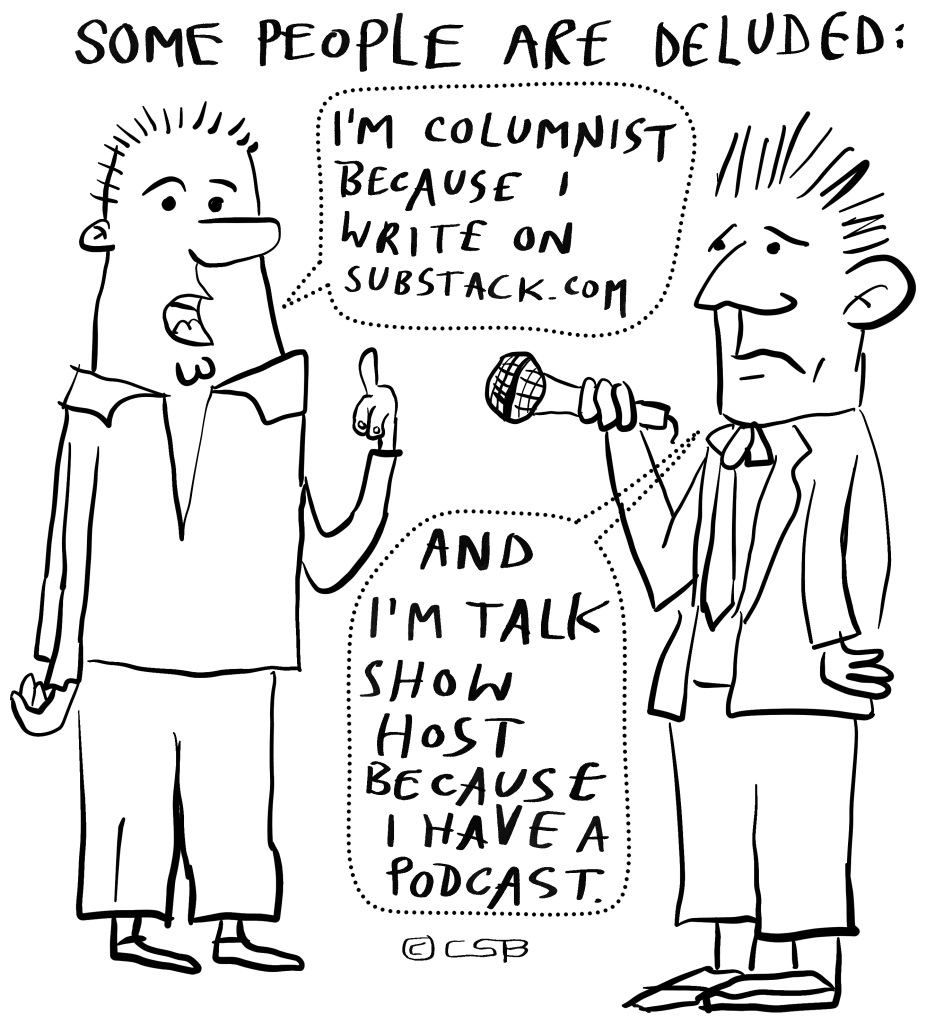 SOME PEOPLE ARE DELUDED:
I'M COLUMNIST
BECAUSE I
WRITE ON
SUBSTACK.COM
AND
I'M TALK
SHOW
HOST
BECAUSE
I HAVE A
PODCAST.
© CSB